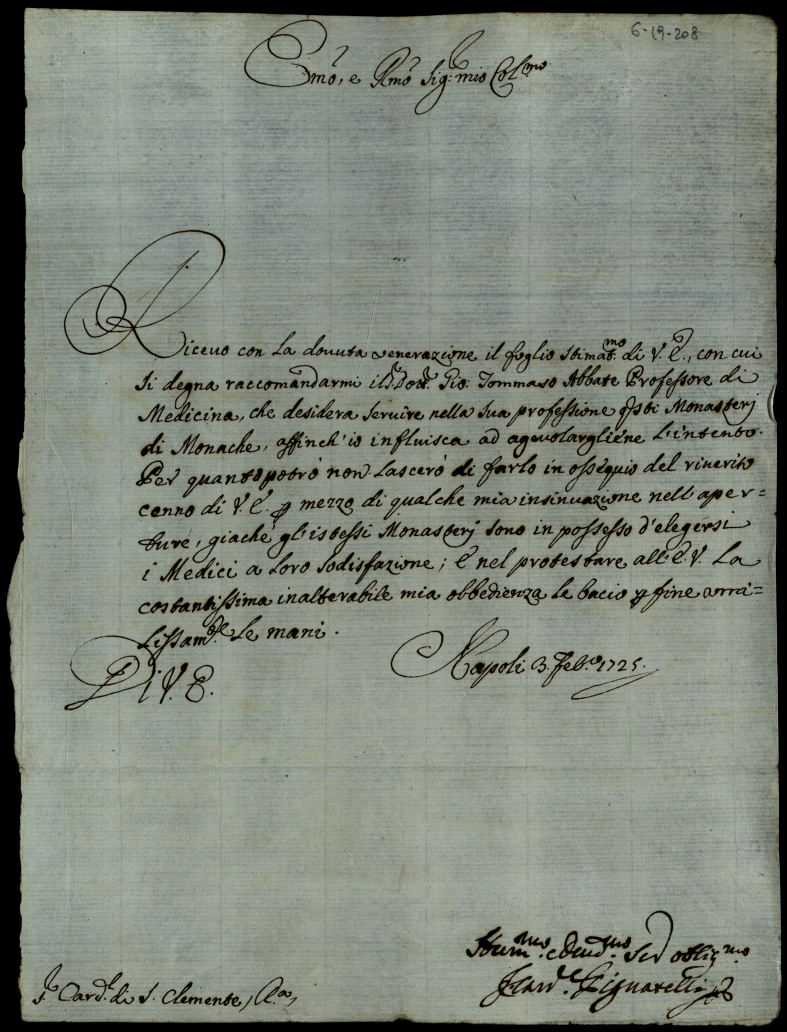 6-19-208
Emo, e Rmo Sig: mio Colmo
Ricevo con la dovuta venerazione il foglio stimatmo di V. E., con cui
si degna raccomandarmi il Sr. Dottr. Gio: Tommaso Abbate Professore di
Medicina, che desidera servire nella sua professione questi Monasterj
di Monache, affinch'io influisca ad agevolargliene l'intento.
Per quanto potrò non lascerò di farlo in ossequio del riverito
cenno di V. E. p mezzo di qualche mia insinuazione nell'aper=
ture, giache gl'istessi Monasterj sono in possesso d'elegersi
i Medici a loro sodisfazione; E nel protestare all'E. V. la
costantissima inalterabile mia obbedienza le bacio p fine umi=
lissamte le mani.
Di V. E.
Napoli 3. Febo. 1725.
Humo. e Devmo. Ser obligmo
F Card. Pignatelli
Sr. Card. di S. Clemente, Ra,